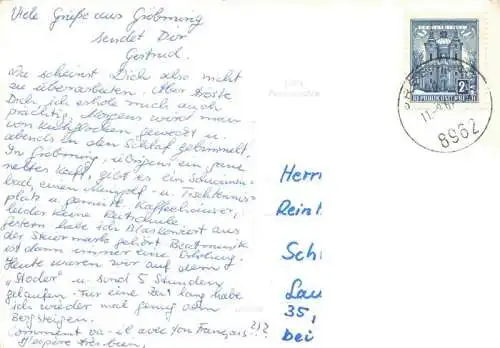 Viele Grüße aus Gröbming
sendet Dir
Gertrud.
Du scheinst Dich also nicht
zu überarbeiten. Aber tröste
Dich, ich erhole mich auch
prächtig. Morgens wird man
von Kuhglocken geweckt u.
abends in den Schlaf gebimmelt.
In Gröbming, übrigens ein
nettes Kaff, gibt es ein Schwimm-
bad, einen Minigolf- u. Tischtennis-
platz u. gemütl. Kaffeehäuser,
leider keine Reitschule.
Gestern habe ich Blaskonzert aus
der Steiermark gehört. Beatmusik
ist dann immer eine Erholung.
Heute waren wir auf dem
"Stoder" u. sind 5 Stunden
gelaufen. Für eine Zeit lang habe
ich wieder mal genug vom
Bergsteigen.
Comment va-il avec ton Français???
J'espère très bien.
2.40
REPUBLIK ÖSTERREICH
8962
Herrn
Rein
Sch
Lau
35,
bei